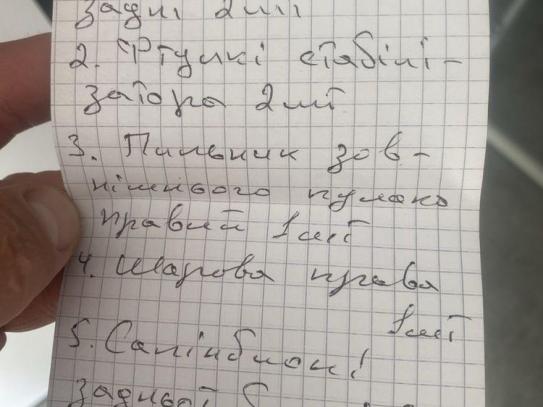 задні 2шт
2. Втулкі стабілі-
затора 2шт
3. Пильник зов-
нішнього кулака
правий 1шт
4. Шарова права
1шт
5. Салінблок!
задньої